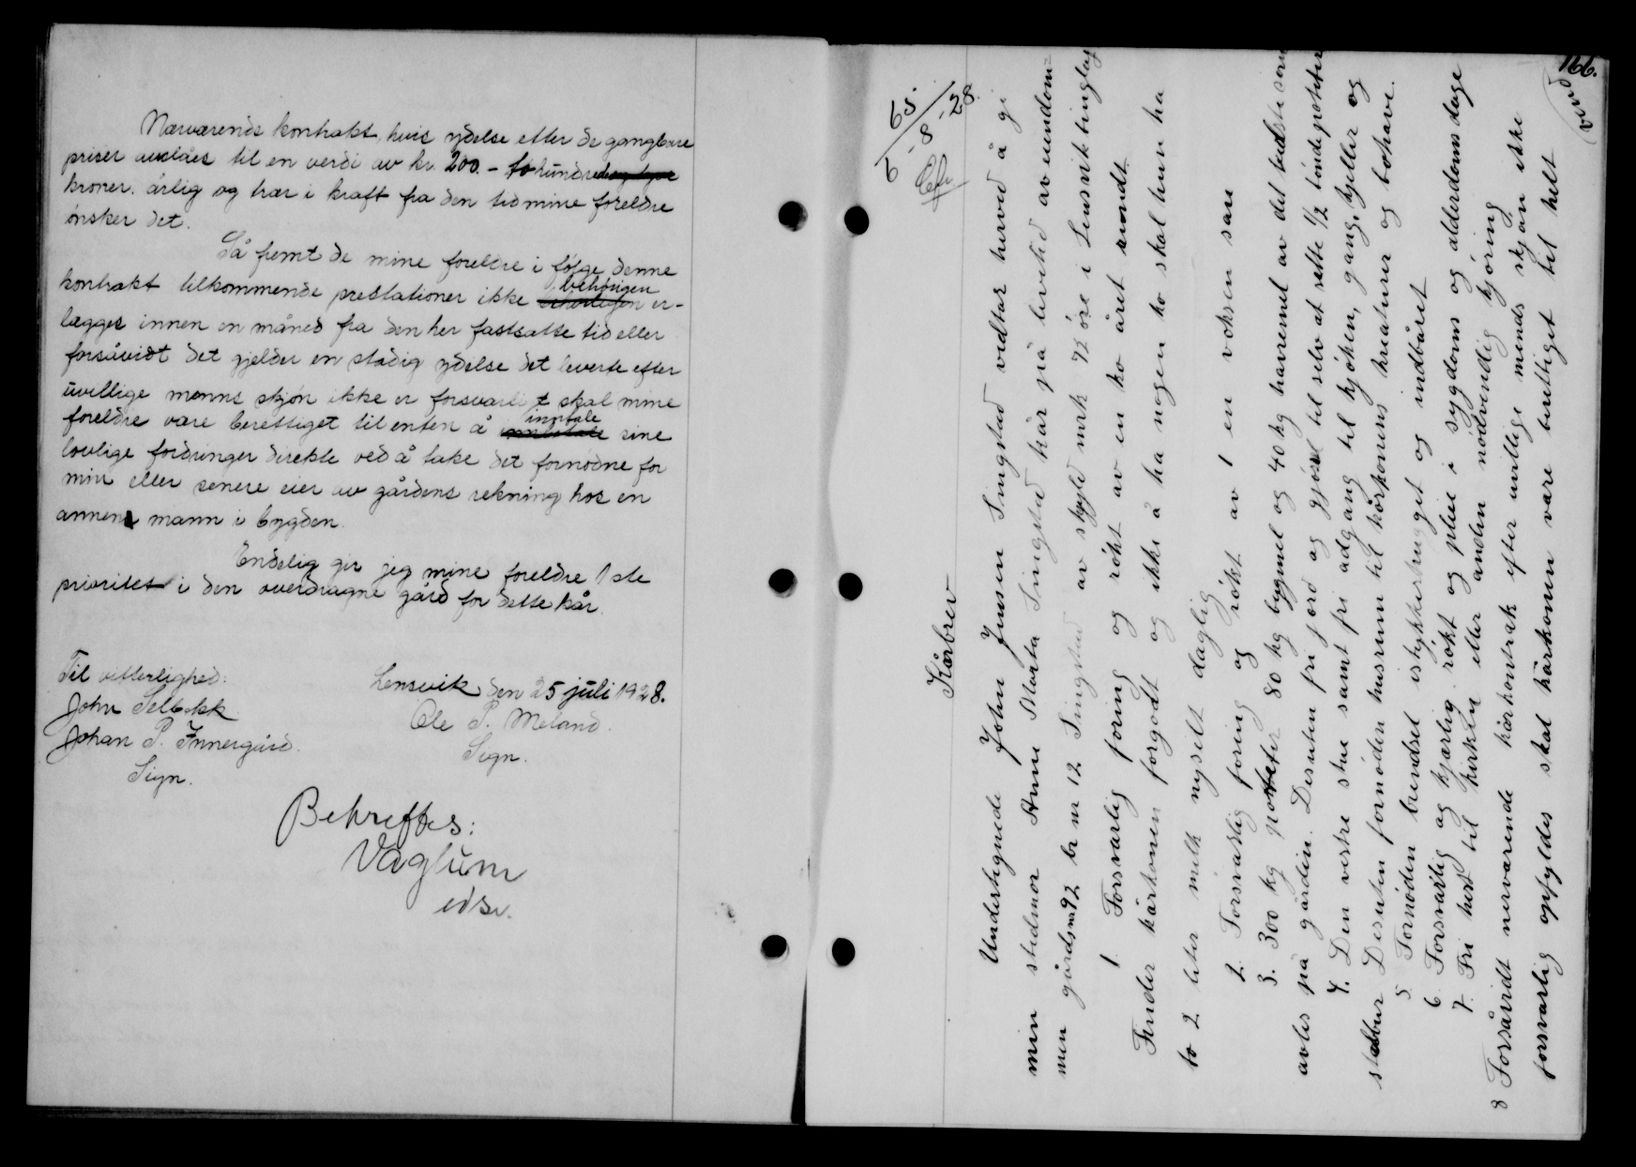 Nærværende kontrakt, hvis ydelse etter de gangbare
priser anslåes til en verdi av kr. 200.- to hundrede og tyve
kroner. årlig og trær i kraft fra den tid mine foreldre
ønsker det.
Så fremt de mine foreldre i følge denne
kontrakt tilkommende prestationer ikke behørigen er-
lægges innen en måned fra den her fastsatte tid eller
forsåvidt det gjelder en stadig ydelse det leverte efter
uvillige menns skjøn ikke er forsvarlit skal mine
foreldre være berettiget til enten å inntale sine
lovlige fordringer direkte ved å take det fornødne for
min eller senere eier av gårdens rekning hos en
annen mann i bygden.
Endelig gir jeg mine foreldre 1ste
prioritet i den overdragne gård for dette kår.
Til vitterlighed:
John Selbekk
Johan P. Innergård.
Sign.
Lensvik den 25 juli 1928.
Ole P. Meland.
Sign.
Bekreftes:
Vaglum
edsv.
65
6-8-28
166.
(vend
Kårbrev
Undertegnede John Jensen Singstad vedtar herved å gi
min stedmor Ane Marta Singstad kår på levetid av eiendom-
men gårdsnr 92 br nr 12 Singstad av skyld mrk 72 øre i Lensvik tinglag
1 Forsvarlig foring og røkt av en ko året rundt.
Finder kårkonen forgodt og ikke å ha nogen ko skal hun ha
to 2 liter melk nysilt daglig
2. Forsvarlig foring og røkt av 1 en voksen sau
3. 300 kg poteter 80 kg bygmel og 40 kg havremel av det bedste som
avles på gården. Desuten fri jord og gjødsel til selv at sette 1/2 tønde poteter
4. Den vestre stue samt fri adgang til kjøken, gang, kjeller og
stabbur Desuten fornøden husrum til kårkonens kreaturer og bohave.
5. Fornøden brendsel istykkerhugget og indbåret
6. Forsvarlig og kjærlig røkt og pleie i sygdoms og alderdoms dage
7. Fri hest til kirken eller anden nødvendig kjøring
8 Forsåvidt nerværende kårkontrak efter uvillige mends skjøn ikke
forsvarlig opfyldes skal kårkonen være berettiget til helt